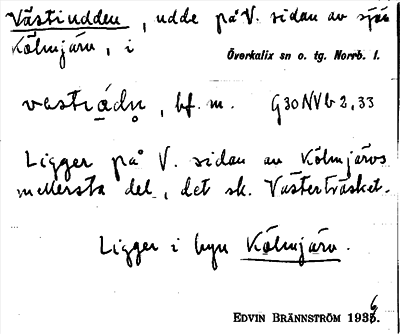 Västiudden, udde på V. sidan av sjön
Kölmjärv, i
Överkalix sn o. tg. Norrb. l.
bf. m. G30NVb2,33
Ligger på V. sidan av Kölmjärvs
mellersta del, det sk. Västerträsket.
Ligger i byn Kölmjärv.
EDVIN BRÄNNSTRÖM 1936.